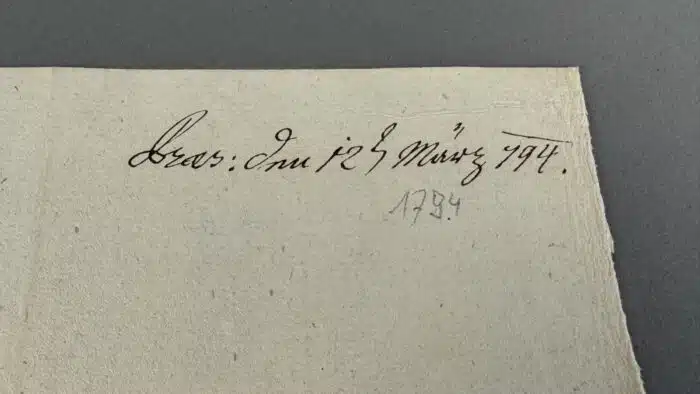 Præs: den 12t März 794.
1794